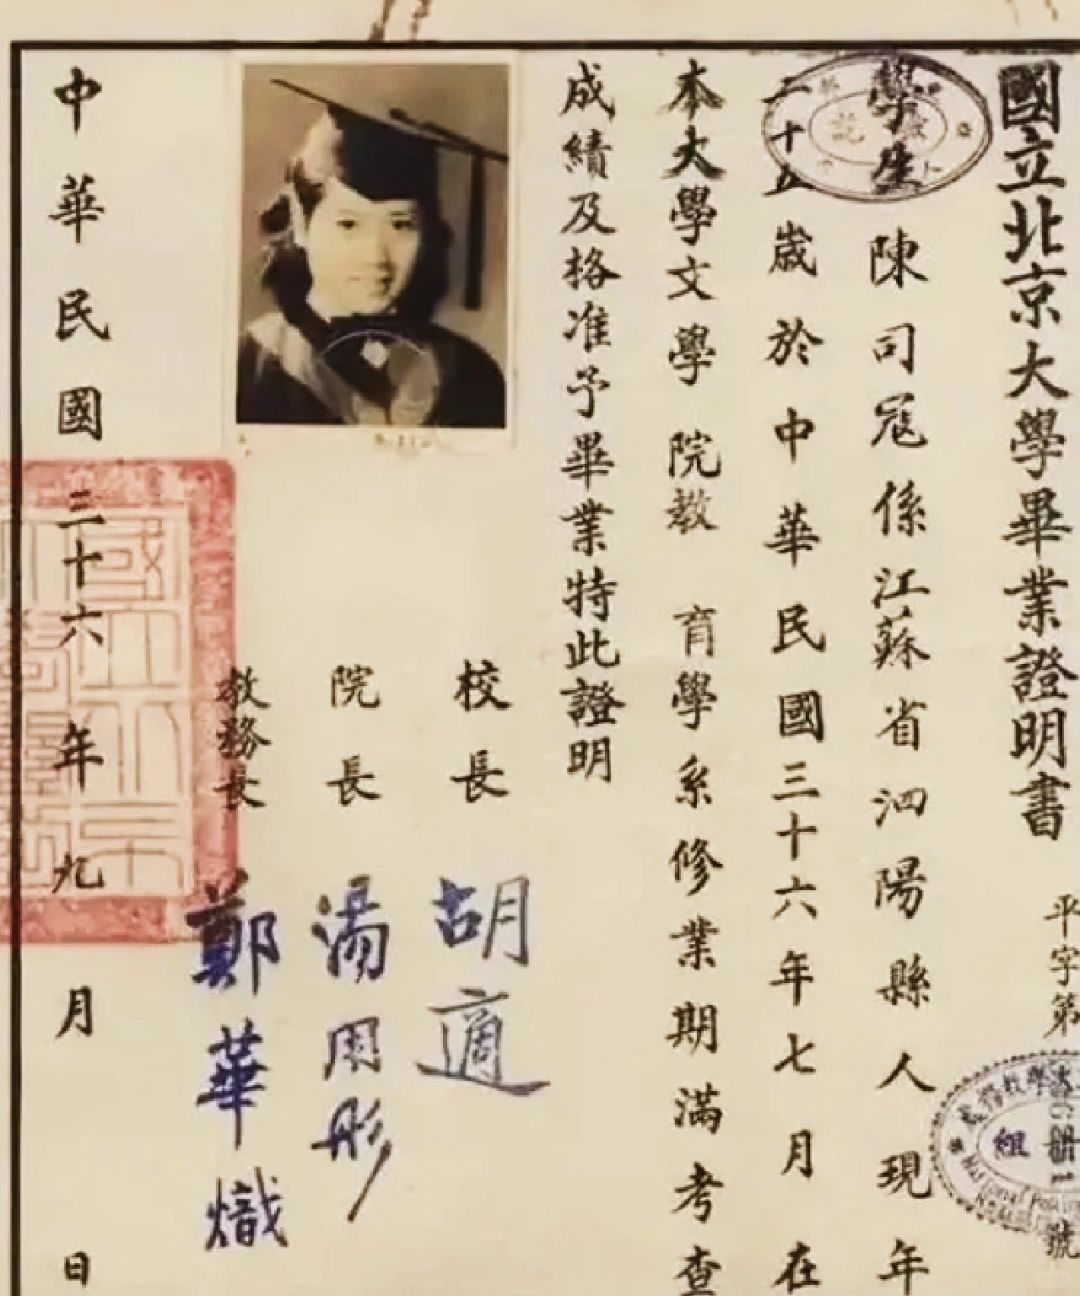 國立北京大學畢業證明書
平字第
號
學生陳司寇係江蘇省泗陽縣人現年
二十五歲於中華民國三十六年七月在
本大學文學院教育學系修業期滿考查
成績及格准予畢業特此證明
校長 胡適
院長 湯用彤
教務長 鄭華熾
中華民國三十六年九月 日
組